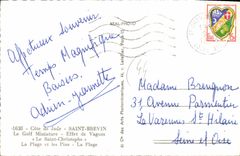 Affectueux Souvenirs
Temps Magnifique
Baisers
Adrien - Jeannette
1030 - Côte de Jade - SAINT-BREVIN
Le Golf Miniature - Effet de Vagues
« Le Saint-Christophe »
La Plage et les Pins - La Plage
REAL-PHOTO
Madame Brengnon
31 Avenue Parmentier
La Varenne St Hilaire
Seine et Oise